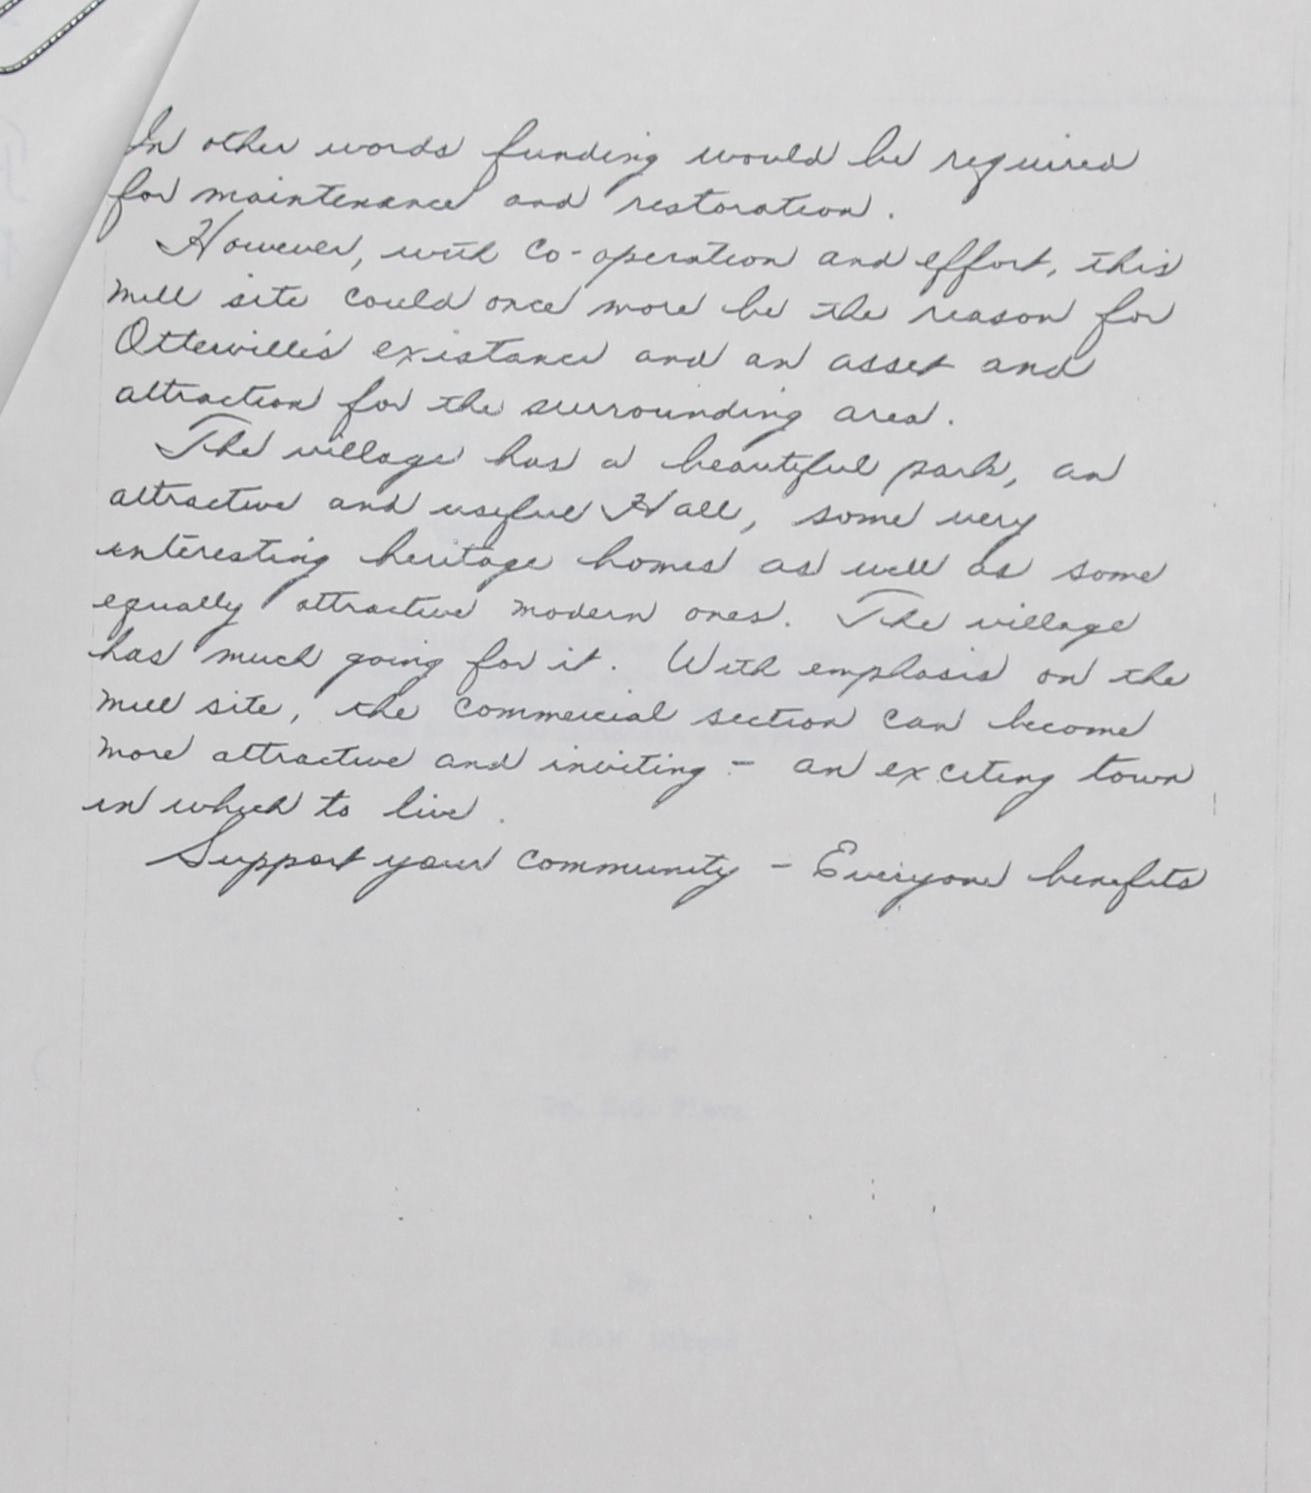 In other words funding would be required
for maintenance and restoration.
However, with co-operation and effort, this
mill site could once more be the reason for
Otterville's existance and an asset and
attraction for the surrounding area.
The village has a beautiful park, an
attractive and useful Hall, some very
interesting heritage homes as well as some
equally attractive modern ones. The village
has much going for it. With emphasis on the
mill site, the commercial section can become
more attractive and inviting - an exciting town
in which to live.
Support your community - Everyone benefits
For